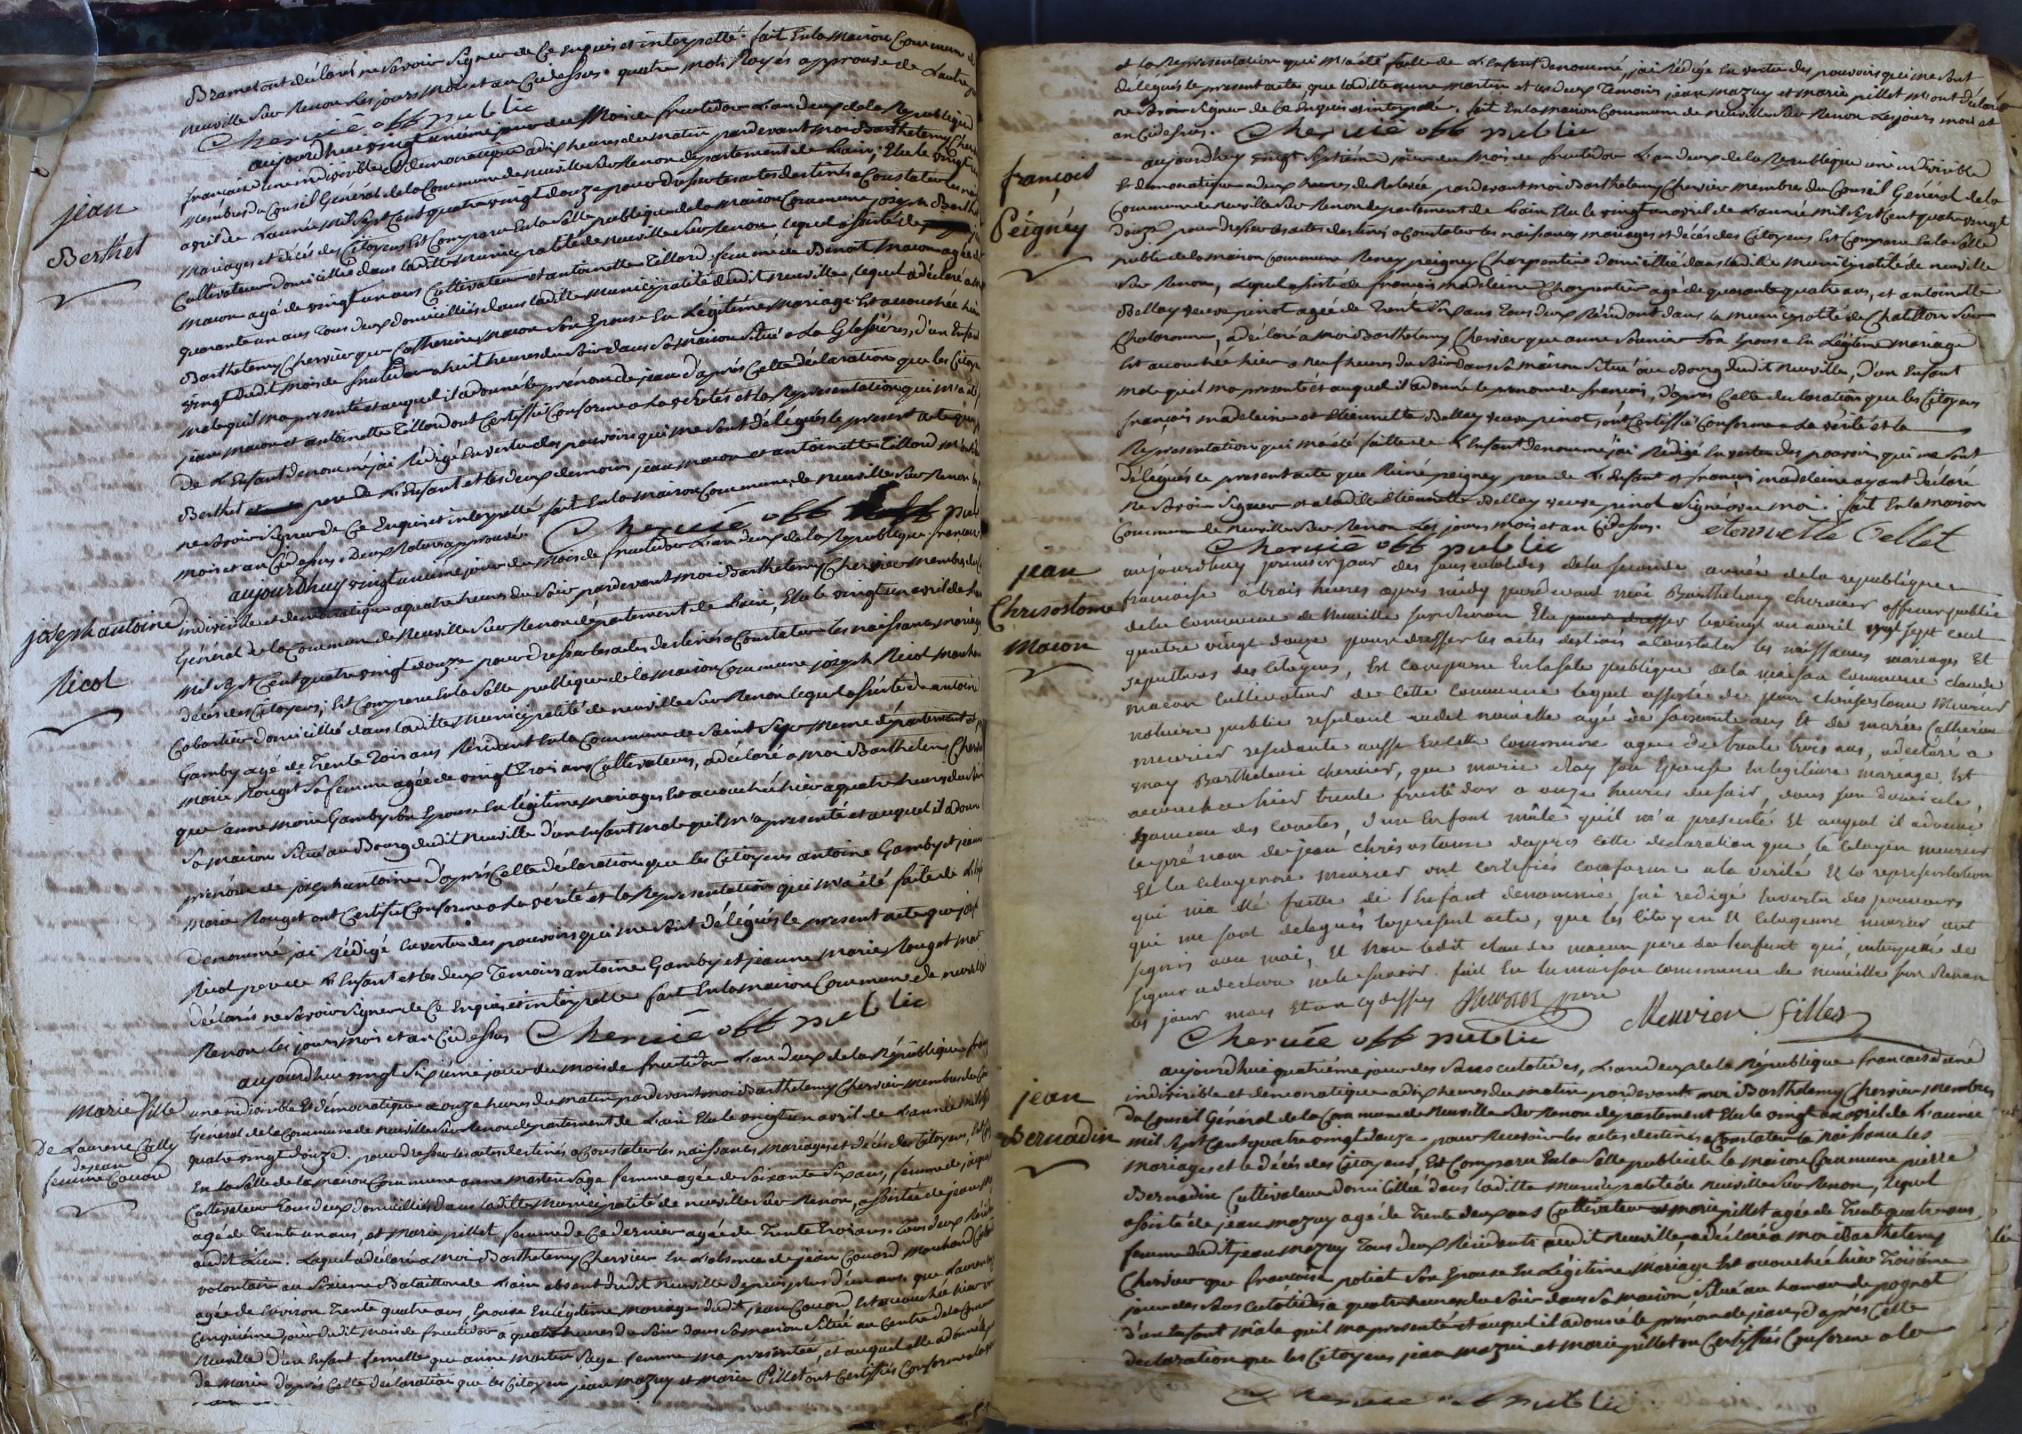 Bramet ont déclaré ne savoir signer de ce enquis et interpellé. fait En la Maison Commune de
neuville sur Renon Les jours mois et an Cidessus. quatre mots Rayés approuvé de L'autre
Chervié off public
jean
Berthet
aujourdhuy vingt unième jour du Mois de fructidor L'an deux de la Republique
francaise une indivisible et démocratique a dix heures du matin pardevant moi Barthelemy Cher
Membres du Conseil Général de la Commune de neuville sur Renon departement de Lain, Elu le vingt un
avril de L'année Mil sept Cent quatre vingt douze pour dresser les actes destinés a Constater les nais
Mariages et décés des Citoyens Est Comparu En la Salle publique de la Maison Commune joseph Berthet
Cultivateur domicillié dans laditte Municipalité de neuville sur Renon, lequel assisté de
Macon agé de vingt un ans Cultivateur et antoinette Tillord femme de Benoit Macon agée de
quarante un ans Tous deux domicilliés dans laditte Municipalité dudit neuville, lequel a déclaré a
Barthelemy Chervier que Catherine Macon Son Epouse En Légitime Mariage Est accouchée hier
vingt dudit mois de fructidor a huit heures du Soir dans Sa maison Situé a La Glassieres, d'un Enfant
male quil ma presenté et auquel il a donné le prénom de jean d'après Cette déclaration que les Citoye
jean macon et antoinette Tillord ont Certiffié Conforme a La vérités et la Représentation qui m'a été
de L'Enfant denommé, jai Rédigé En vertu des pouvoirs qui me Sont délégués le present acte que
Berthet pere de L'Enfant et les deux témoins jean macon et antoinette Tillord m'ont
ne Savoir Signer de Ce Enquis et interpellé fait En la Maison Commune de neuville sur Renon les
mois et an Cidessus. deux Ratures approuvé. Chervié off pub
joseph antoine
Ricol
aujourdhuy vingt unieme jour du Mois de fructidor L'an deux de la Republique francais
indivisible et démocratique a quatre heures du Soir pardevant moi Barthelemy Chervier Membre du C
Général de la Commune de Neuville Sur Renon département de Lain, Elu le vingt un avril de L
Mil sept Cent quatre vingt douze pour dresser les actes destinés a Constater les naissances, mariages
décés des Citoyens; Est Comparu En la Salle publique de la Maison Commune joseph Ricol Marchan
Cabartier domicillié dans laditte Municipalité de neuville sur Renon lequel assisté de antoine
Gamby agé de Trente Trois ans Résident En la Commune de Saint Syr Meme département et
Marie Rouget Sa femme agée de vingt Trois ans Cultivateurs, a déclaré a moi Barthelemy Chervi
que anne Marie Gamby Son Epouse En légitime Mariage Est accouchée hier a quatre heures du Soir
Sa Maison Situé au Bourg dudit neuville d'un Enfant Male quil m'a presenté et auquel il a donné
prénom de joseph antoine d'après Cette déclaration que les Citoyens antoine Gamby et jeanne
Marie Rouget ont Certifié Conforme a La vérité et la Représentation qui m'a été faite de L'En
denommé jai Rédigé En vertu des pouvoirs qui me Sont délégués le present acte que jose
Ricol pere de L'Enfant et les deux Temoins antoine Gamby et jeanne Marie Rouget mont
déclarés ne Savoir Signer de Ce Enquis et interpellé fait En la maison Commune de neuville
Renon les jours mois et an Cidessus Chervié off public
Marie fille
De Laurence Cally
de jean
femme Couard
aujourdhui vingt Sixieme jour du mois de fructidor L'an deux de la République franç
une indivisible Et démocratique a onze heures du matin pardevant moi Barthelemy Chervier Membre du Con
Général de la Commune de neuville sur Renon departement de L'ain Elu le vingt un avril de L'année Mil sept
quatre vingt douze. pour dresser les actes destinés a Constater les naissances Mariages et décés des Citoyens, Est C
En la Salle de la maison Commune anne Martin Sage femme agée de Soixante Six ans, femme de jaque
Cultivateur Tous deux domicilliés dans laditte Municipalité de neuville sur Renon, assistée de jean M
agé de Trente un ans, et Marie pillet, femme de Ce dernier agée de Trente Trois ans. Tous deux Résid
audit Lieu. Laquelle a déclaré a Moi Barthelemy Chervier En L'absence de jean Couard Marchand
volontaire au Sixieme Bataillon de L'ain absent dudit neuville depuis plus d'un an. que Laurence
agée de Environ Trente quatre ans, Epouse En légitime mariage dudit jean Couard Est accouchée hier vin
Cinquiéme jour dudit Mois de fructidor a quatre heures du Soir dans Sa maison Situé au Centre de la Commune
Neuville D'un Enfant femelle que anne Martin Sage femme ma presentée, et auquel elle a donné le
de Marie d'après Cette déclaration que les Citoyens jean Mazuy et Marie Pillet ont Certiffiés Conforme a la
et la Représentation qui m'a été faitte de L'Enfant denommé, jai Rédigé En vertu des pouvoirs qui me Sont
délégués le present acte, que laditte anne Martin et les deux Temoins jean mazuy et marie pillet m'ont déclaré
ne Savoir Signer de Ce Enquis et interpellé. fait En la Maison Commune de neuville sur Renon Les jours mois et
an Cidessus. Chervié off public
françois
Peigney
aujourdhuy vingt Septiéme jour du Mois de fructidor L'an deux de la République une indivisible
Et démocratique a deux heures de Relevée pardevant moi Barthelemy Chervier membres du Conseil Général de la
Commune de neuville sur Renon departement de Lain Elu le vingt un avril de L'année Mil Sept Cent quatre vingt
douze pour dresser les actes destinés a Constater les naissances mariages et décés des Citoyens Est Comparu En la Salle
public de la maison Commune Reney peigney Charpentier Domicillié dans laditte municipalité de neuville
sur Renon, Lequel assisté de francois madeleine Charpentier agé de quarante quatre ans, et antoinette
Bellay veuve pinot agée de Trente Six ans Tous deux Résidont dans la municipalité de Chatillon Sur
Chalaronne, a déclaré a Moi Barthelemy Chervier que anne Saunier Son Epouse En Légitime mariage
Est accouchée hier a neuf heures du Soir dans Sa maison Situé au Bourg dudit neuville, d'un Enfant
male quil ma presenté et auquel il a donné le prenom de francois, D'après Cette declaration que les Citoyens
francois madeleine et Etiennette Bellay veuve pinot ont Certiffié Conforme a La vérité et la
Représentation qui m'a été faitte de L'Enfant denommé jai Rédigé En vertu des pouvoirs qui me Sont
délégués le present acte que Réné peigney pere de L'Enfant et francois madeleine ayant déclaré
ne Savoir Signer et laditte Etiennette Bellay veuve pinot Signé avec moi. fait En la maison
Commune de neuville sur Renon Les jours Mois et an Cidessus. etiennette Bellet
Chervié off public
jean
Chrisostome
Macon
aujourdhuy premier jour des sans culotides de la seconde année de la republique
francaise a trois heures apres midy pardevant moi Barthelemy chervier officier public
de la commune de Neuville sur Renon Elu pour dresser le vingt un avril mil sept cent
quatre vingt douze pour dresser les actes destinés a constater les naissances mariages Et
sepultures des citoyens, Est comparu En la sale publique de la maison commune claude
macon cultivateur de cette commune lequel assisté de jean chrisostome Meurier
notaire public residant audit neuville agé de soixante ans Et de marie Catherine
meurier residente aussi En cette commune agée de trente trois ans, a declaré a
moy Barthelemi chervier, que marie Ray son Epouse En legitime mariage, Est
accouchée hier trente fructidor a onze heures du soir, dans son domicile,
hameau des couctes, d'un Enfant mâle qu'il m'a presenté Et auquel il a donné
le pré nom de jean chrisostome d'apres cette declaration que le citoyen meurier
Et la citoyenne meurier ont certifiés conforme a la verité Et la representation
qui m'a été faitte de l'Enfant denommé, j'ai redigé Envertu des pouvoirs
qui me sont delegués le present acte, que les citoyen Et citoyenne meurier ont
signés avec moi, Et non ledit claude macon pere de lenfant qui, interpellé de
signer a declaré ne le savoir. fait En la maison commune de neuville sur Renon
les jour mois Et an cy dessus Meurier pere Meurier fille
Chervié off public
jean
Bernadin
aujourdhuie quatriéme jour des Sansculotides, L'an deux de la République francaise une
indivisible et democratique a dix heures du matin pardevant moi Barthelemy Chervier Membres
du Conseil Général de la Commune de Neuville sur Renon departement Elu le vingt un avril de L'année
Mil Sept Cent quatre vingt douze pour Recevoir les actes destinés a Constater la naissance les
Mariages et le décés des Citoyens, Est Comparu En la Salle public de la Maison Commune pierre
Bernadin Cultivateur domicillié dans laditte Municipalité de neuville sur Renon, Lequel
assisté de jean mazuy agé de Trente deux ans Cultivateur et marie pillet agée de Trente quatre ans
femme dudit jean mazuy Tous deux Résidents audit neuville, a déclaré a moi Barthelemy
Chervier que francoise poliat Son Epouse En Légitime Mariage Est accouchée hier Troisiéme
jour des Sans culotides a quatre heures du Soir dans Sa maison Situé au hameau de pognat
d'un Enfant Mâle quil ma presenté et auquel il a donné le prénom de jean, d'après Cette
declaration que les Citoyens jean mazuie et Marie pillet ont Certiffiés Conforme a la
Chervié off public